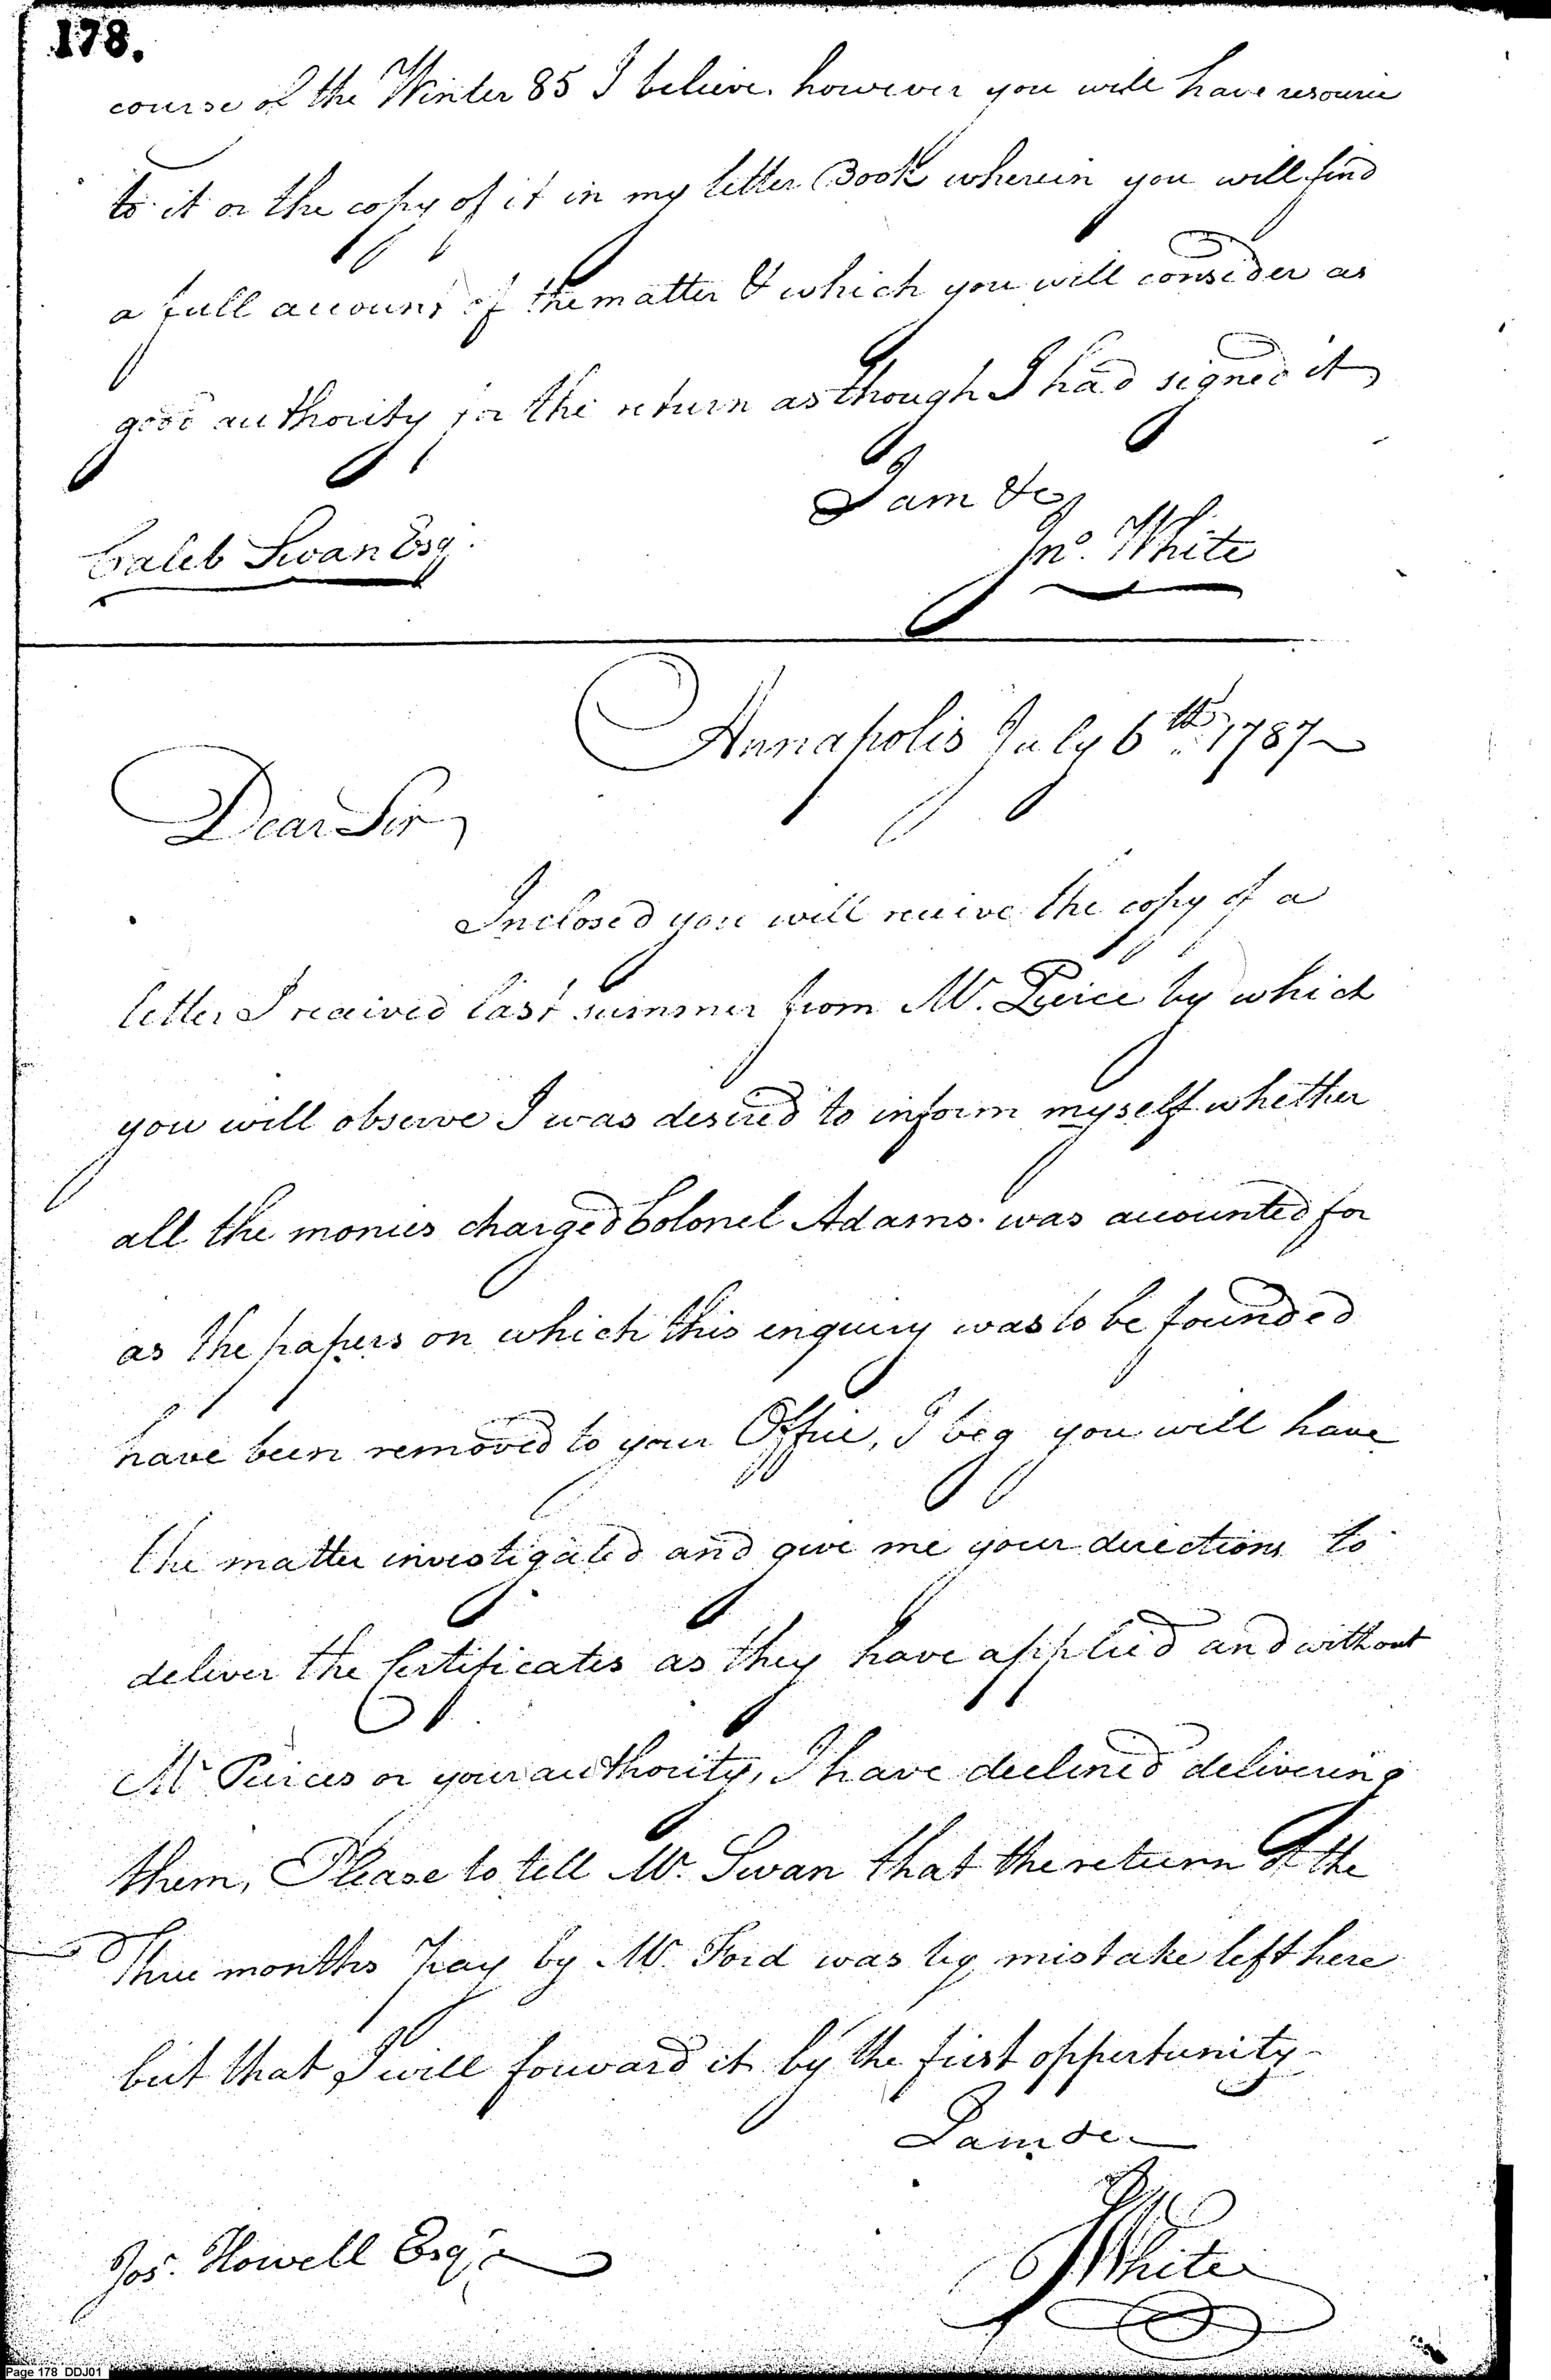 178.
course of the Winter 85 I believe. however you will have resource
to it or the copy of it in my letter Book wherein you will find
a full account of the matter & which you will consider as
good authority for the return as though I had signed it
I am &c
Caleb Swan Esq.
Jno. White
Annapolis July 6th. 1787
Dear Sir
Inclosed you will receive the copy of a
letter I received last summer from Mr. Peirce by which
you will observe I was desired to inform myself whether
all the monies charged Colonel Adams was accounted for
as the papers on which this enquiry was to be founded
have been removed to your Office, I beg you will have
the matter investigated and give me your directions to
deliver the Certificates as they have applied and without
Mr Peirces or your authority, I have declined delivering
them, Please to tell Mr. Swan that the return of the
Three months Pay by Mr. Ford was by mistake left here
but that I will forward it by the first oppertunity-
I am &c
Jos. Howell Esqr
J White
Page 178 DDJ01